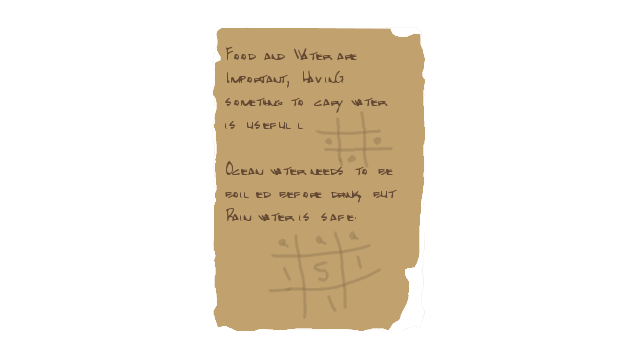 Food and Water are
Important, Having
something to cary water
is useful l
Ocean water needs to be
boil ed before drink, but
Rain water is safe.
S